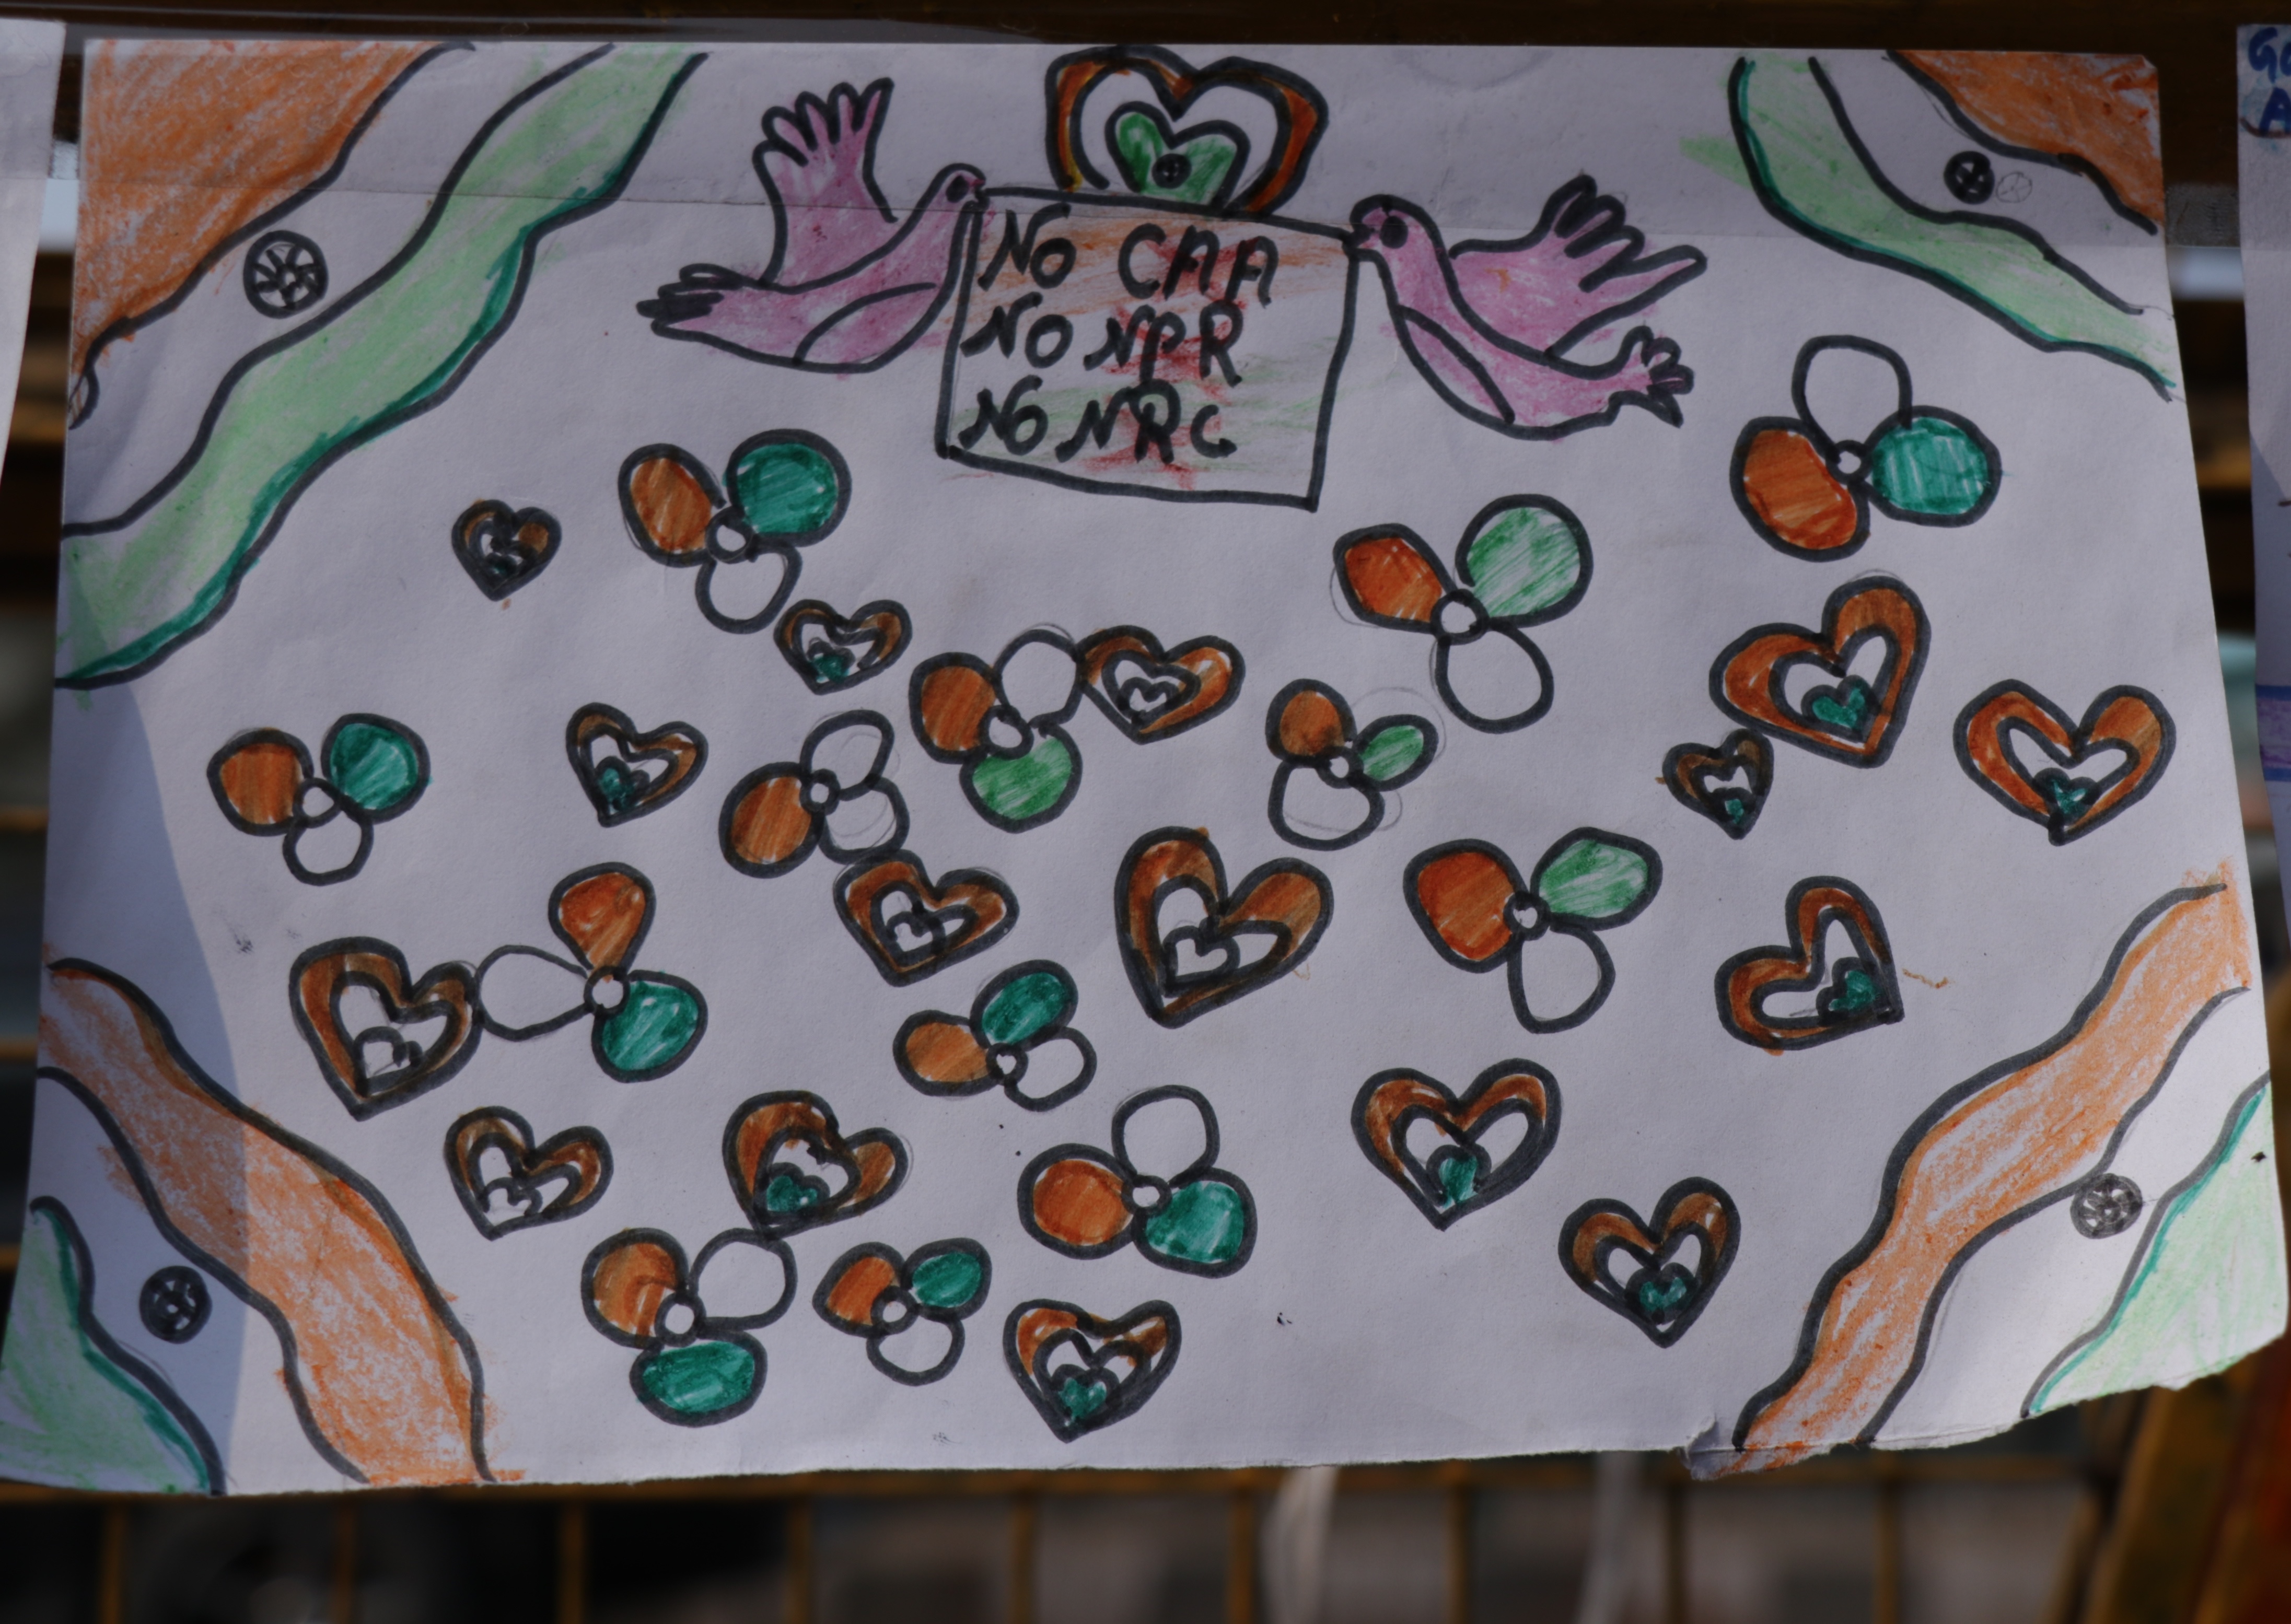 No CAA
No NPR
No NRC